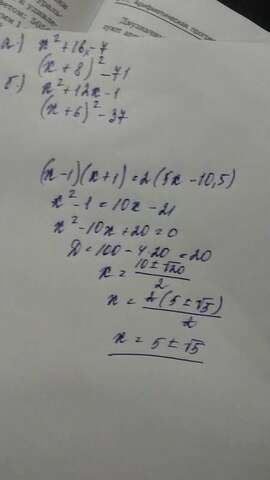 а) x² + 16x - 7
(x + 8)² - 71
б) x² + 12x - 1
(x + 6)² - 37
(x - 1)(x + 1) = 2(5x - 10,5)
x² - 1 = 10x - 21
x² - 10x + 20 = 0
D = 100 - 4·20 = 20
x = (10 ± √20)/2
x = 2(5 ± √5)/2
x = 5 ± √5